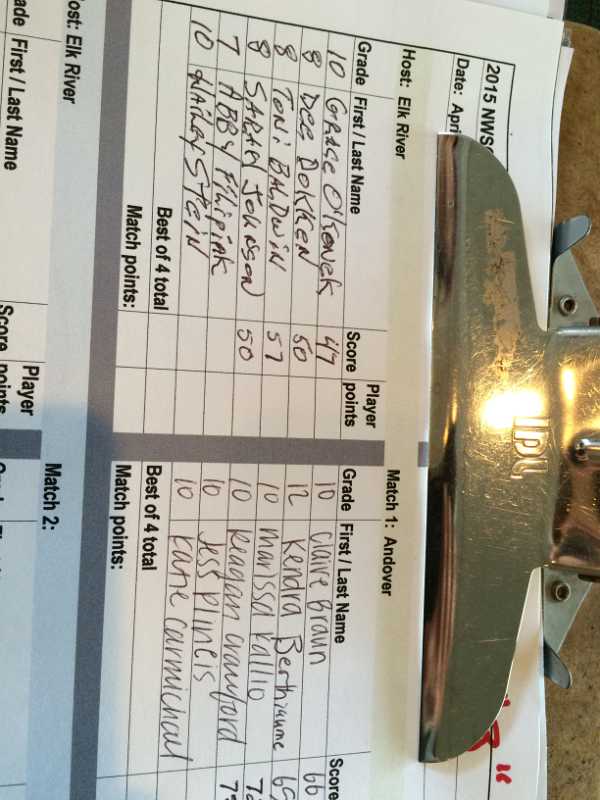 2015 NWS
Date: Apri
Host: Elk River
Grade First / Last Name Score Player points
10 GRACE 47
8 DEE DOKKEN 50
8 TONI BALDWIN 57
8 SARAH JOHNSON 50
7 ABBY
10 HAILEY STEIN
Best of 4 total
Match points:
Match 1: Andover
Grade First / Last Name Score
10 Claire Braun 66
12 Kendra Berthiaume 69
10 Marissa Kallio 7
10 Reagan Crawford 7
10 Jess
10 Katie Carmichael
Best of 4 total
Match points:
ost: Elk River
ade First / Last Name Score Player points
Match 2:
LDL